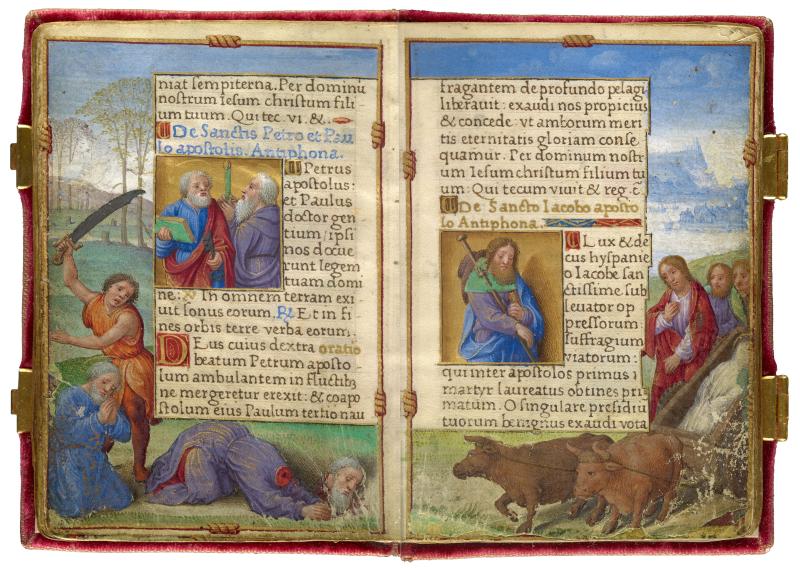 niat sempiterna. Per dominū
nostrum Iesum christum fili-
um tuum. Qui tec. vi. &.
De Sanctis Petro et Pau
lo apostolis. Antiphona.
Petrus
apostolus:
et Paulus
doctor gen
tium / ipsi
nos docue
runt legem
tuam domi
ne: In omnem terram exi
uit sonus eorum. Et in fi
nes orbis terre verba eorum.
Deus cuius dextra oratio
beatum Petrum aposto
lum ambulantem in fluctibꝫ
ne mergeretur erexit: & coapo
stolum eius Paulum tertio nau
fragantem de profundo pelagi
liberauit: exaudi nos propicius
& concede: vt amborum meri
tis eternitatis gloriam conse
quamur. Per dominum nostr
um Iesum christum filium tu
um: Qui tecum viuit & reg. c̄.
De Sancto Iacobo aposto
lo Antiphona.
O Lux & de
cus hyspanie
o Iacobe san
ctissime sub
leuator op
pressorum:
suffragium
viatorum:
qui inter apostolos primus
martyr laureatus obtines pri
matum. O singulare presidiū
tuorum benignus exaudi vota